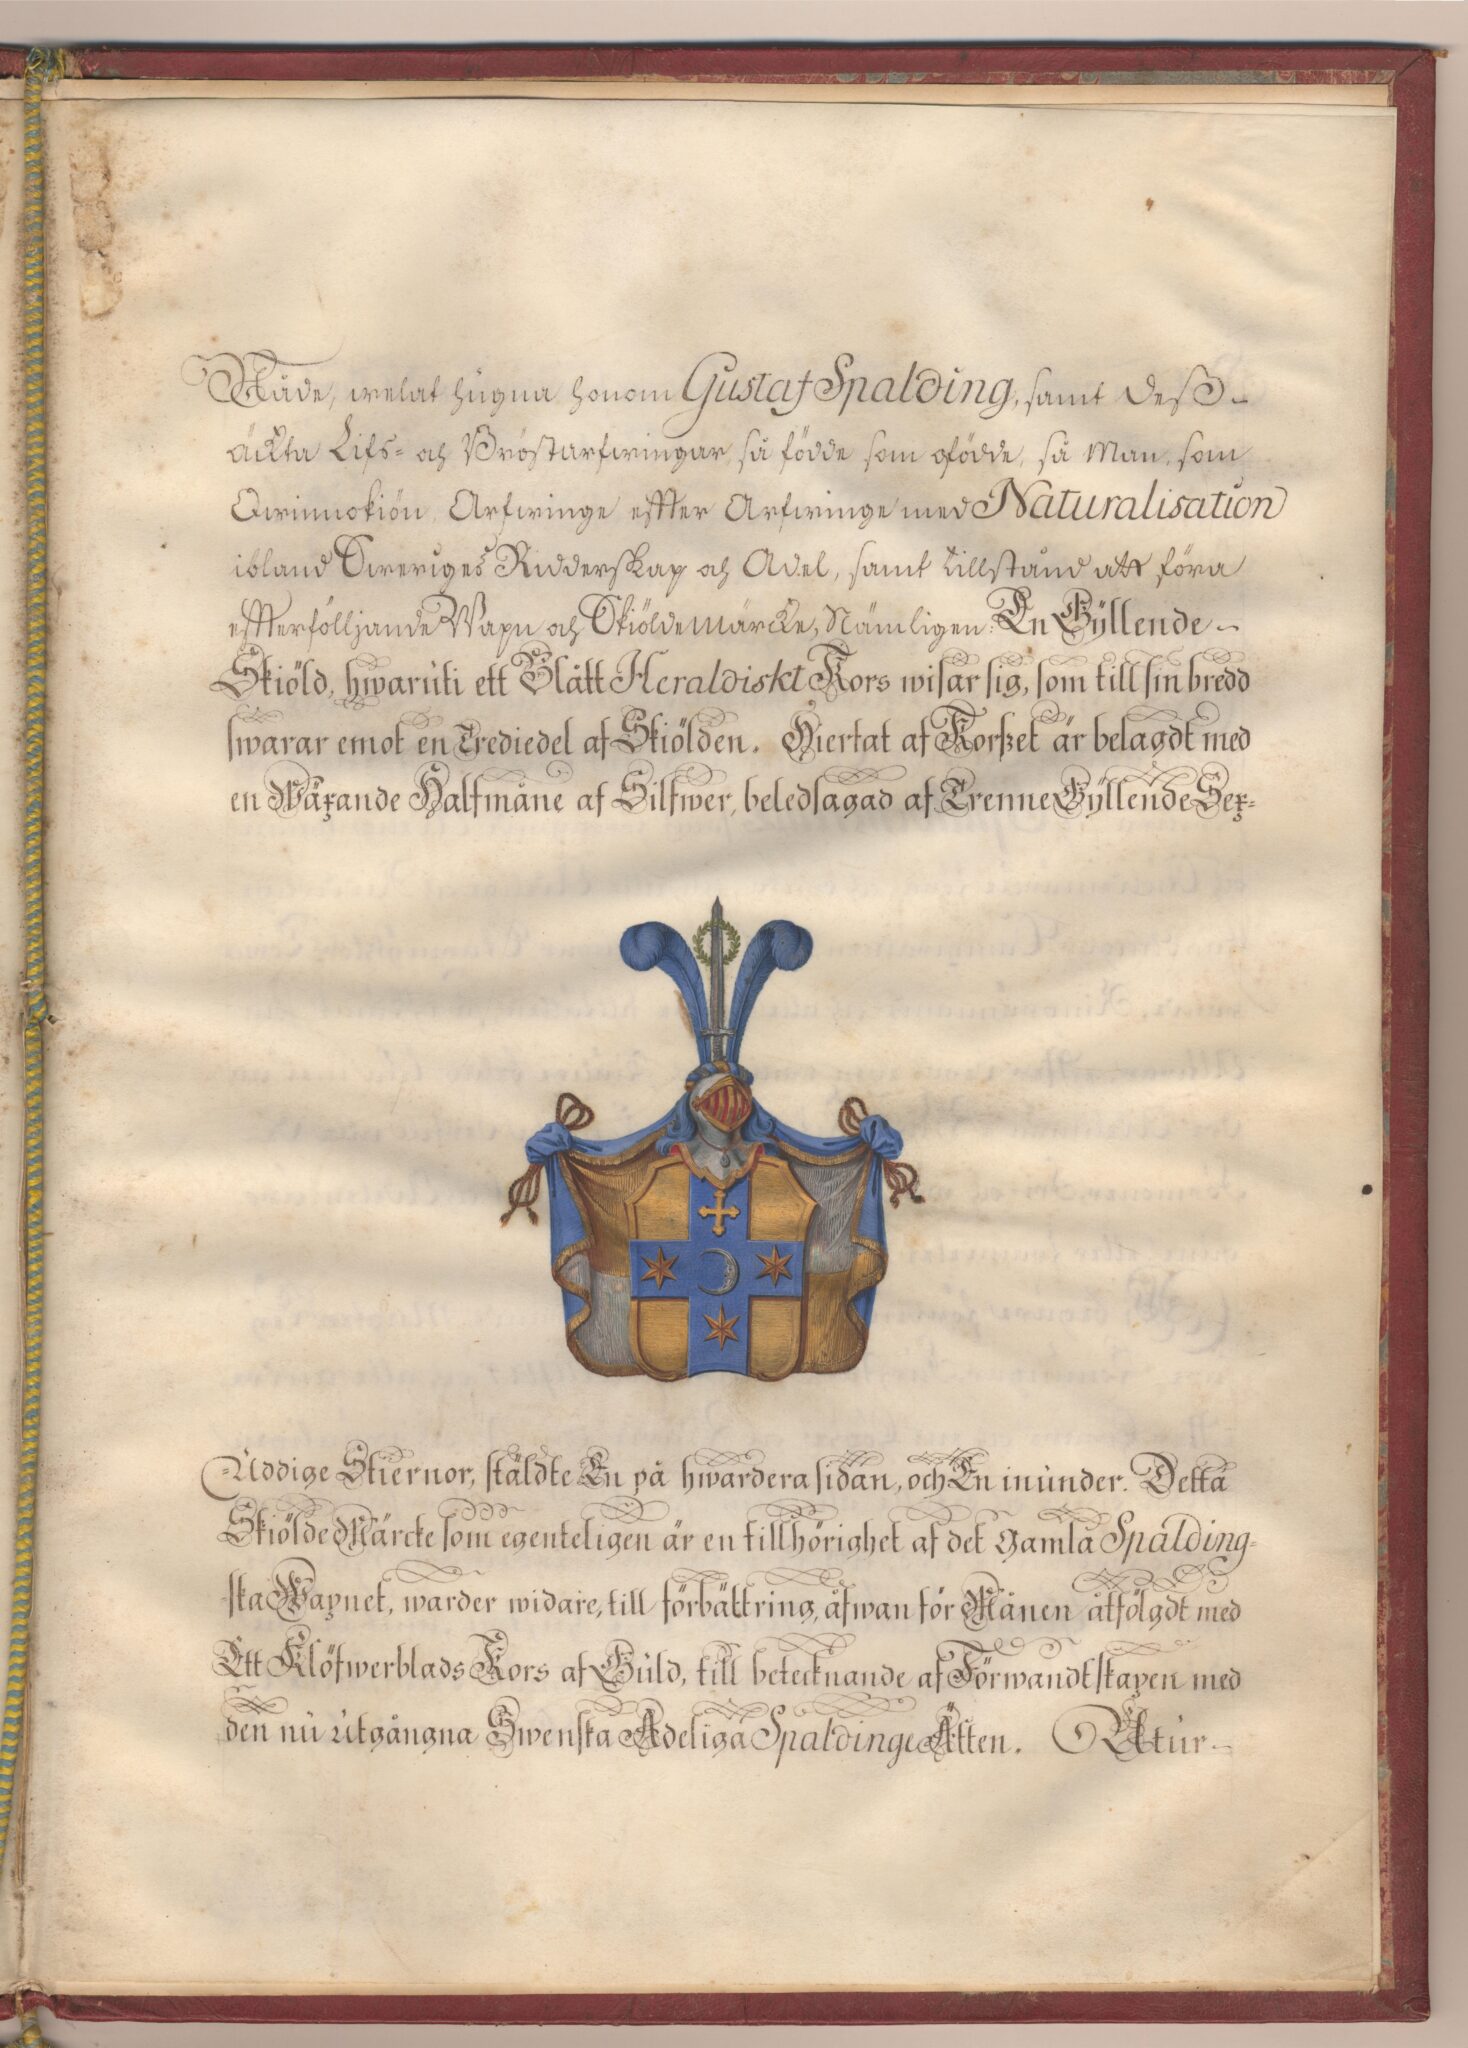 Nåde, welat hugna honom Gustaf Spalding, samt dess
äckta Lifs- och Bröstarfwingar, så födde som ofödde, så Man, som
Qwinnokiön, Arfwinge effter Arfwinge med Naturalisation
ibland Sweriges Ridderskap och Adel, samt tillstånd att föra
effterfölljande Wapn och Skiöldemärcke, Nämligen: En Gyllende
Skiöld, hwaruti ett Blått Heraldiskt Kors wisar sig, som till sin bredd
swarar emot en Trediedel af Skiölden. Hiertat af Korßet är belagdt med
en Wäxande Halfmåne af Silfwer, beledsagad af Trenne Gyllende Sex-
-Uddige Stiernor, stäldte En på hwardera sidan, och En inunder. Detta
SkiöldeMärcke som egenteligen är en tillhörighet af det gamla Spalding-
ska Wapnet, warder widare, till förbättring, åfwan för Månen åtfölgdt med
Ett Klöfwerblads Kors af Guld, till betecknande af Förwandtskapen med
den nu utgångna Swenska Adeliga Spaldinge Ätten. Utur